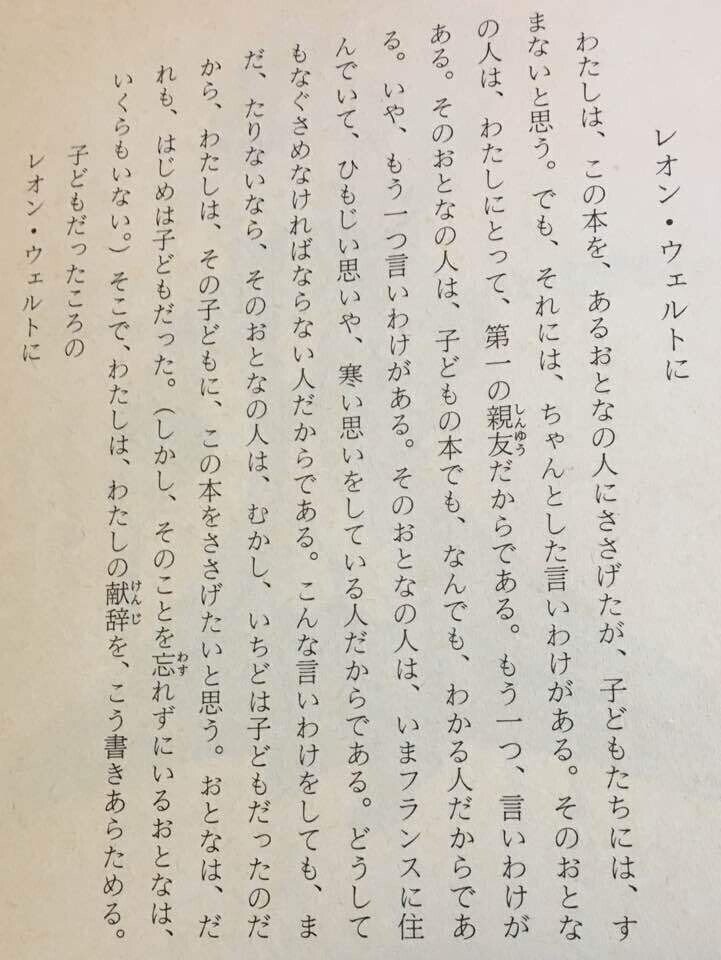 レオン・ウェルトに
わたしは、この本を、あるおとなの人にささげたが、子どもたちには、す
まないと思う。でも、それには、ちゃんとした言いわけがある。そのおとな
の人は、わたしにとって、第一の親友だからである。もう一つ、言いわけが
ある。そのおとなの人は、子どもの本でも、なんでも、わかる人だからであ
る。いや、もう一つ言いわけがある。そのおとなの人は、いまフランスに住
んでいて、ひもじい思いや、寒い思いをしている人だからである。どうして
もなぐさめなければならない人だからである。こんな言いわけをしても、ま
だ、たりないなら、そのおとなの人は、むかし、いちどは子どもだったのだ
から、わたしは、その子どもに、この本をささげたいと思う。おとなは、だ
れも、はじめは子どもだった。(しかし、そのことを忘れずにいるおとなは、
いくらもいない。)そこで、わたしは、わたしの献辞を、こう書きあらためる。
子どもだったころの
レオン・ウェルトに